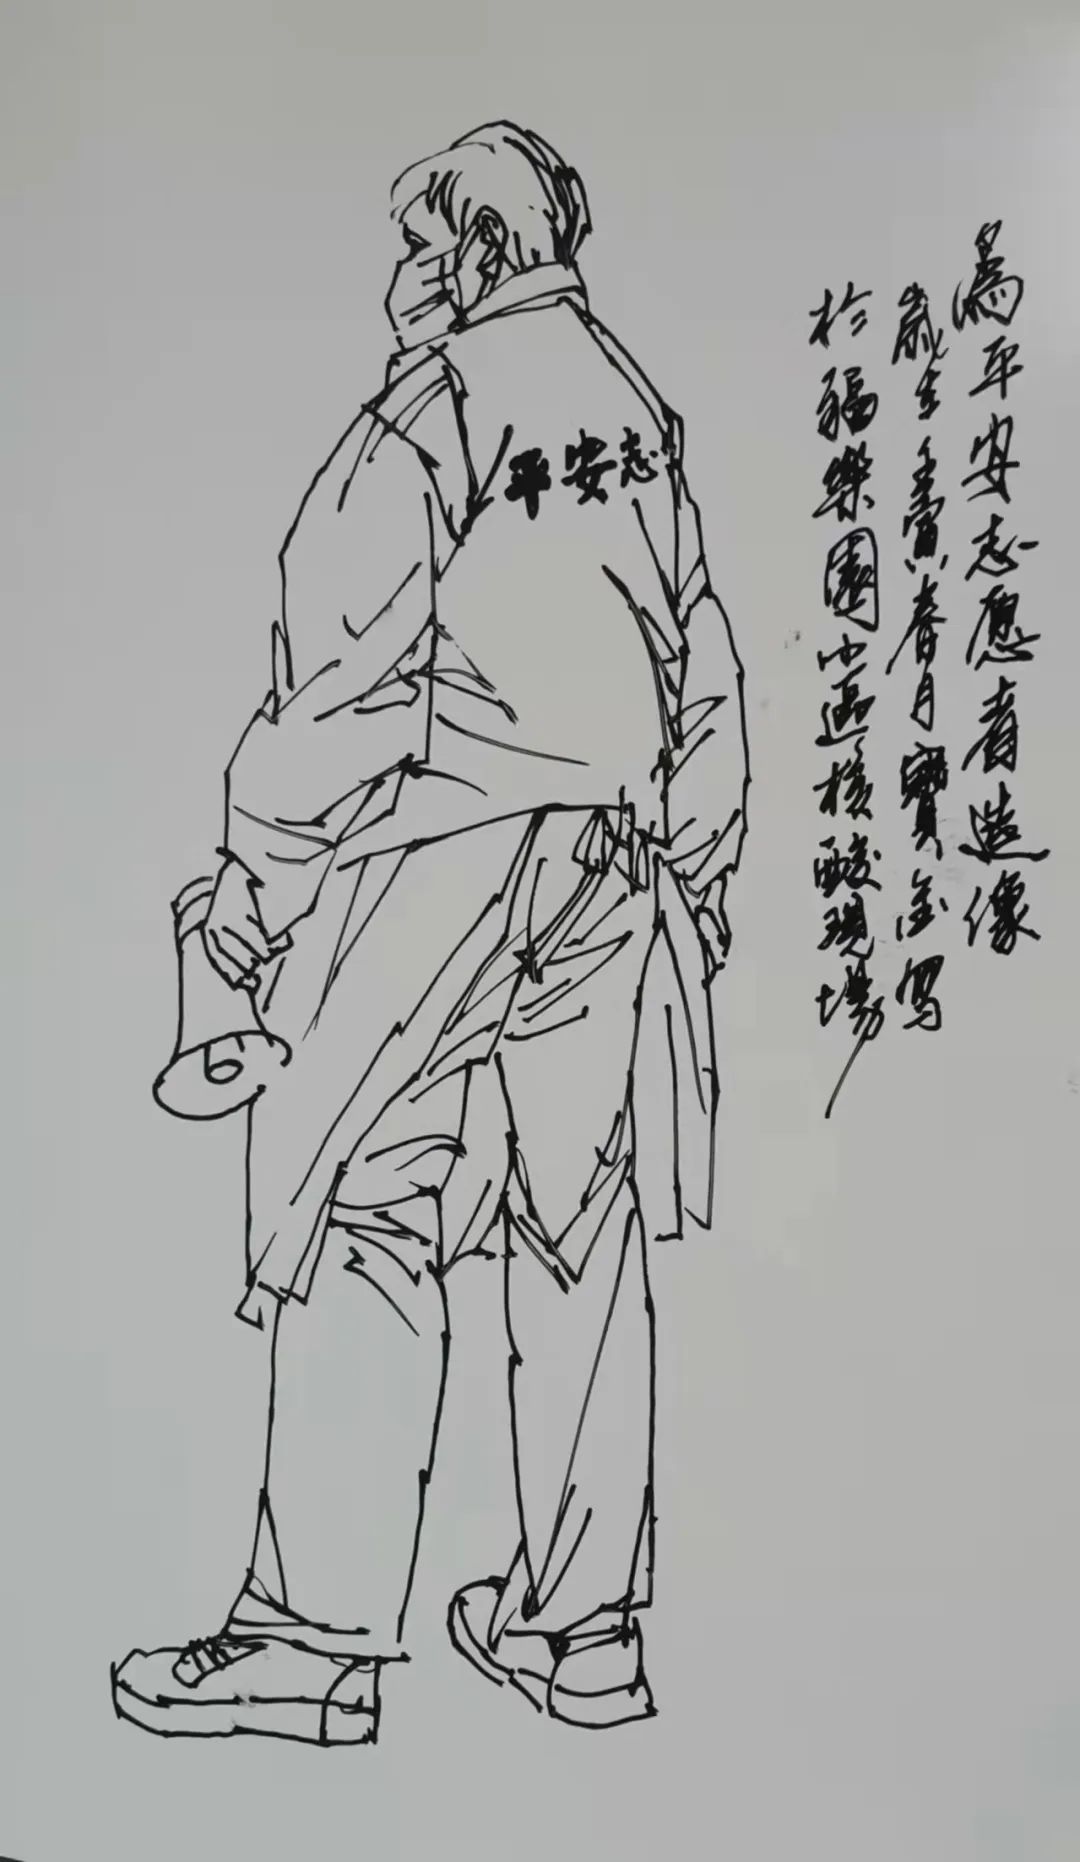 為平安志愿者造像
歲在壬寅春月寶全寫
於福樂園小區核酸現場
平安志